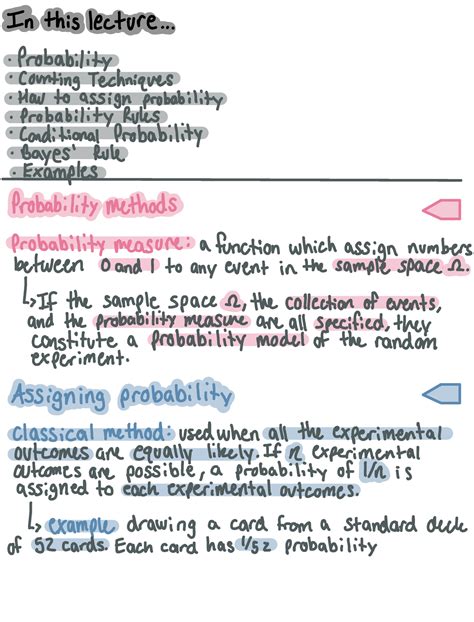 In this lecture...
• Probability
• Counting Techniques
• How to assign probability
• Probability Rules
• Conditional Probability
• Bayes' Rule
• Examples
Probability methods
Probability measure: a function which assign numbers
between 0 and 1 to any event in the sample space Ω.
↳ If the sample space Ω, the collection of events,
and the probability measure are all specified, they
constitute a probability model of the random
experiment.
Assigning probability
Classical method: used when all the experimental
outcomes are equally likely. If n experimental
outcomes are possible, a probability of 1/n is
assigned to each experimental outcomes.
↳ example drawing a card from a standard deck
of 52 cards. Each card has 1/52 probability